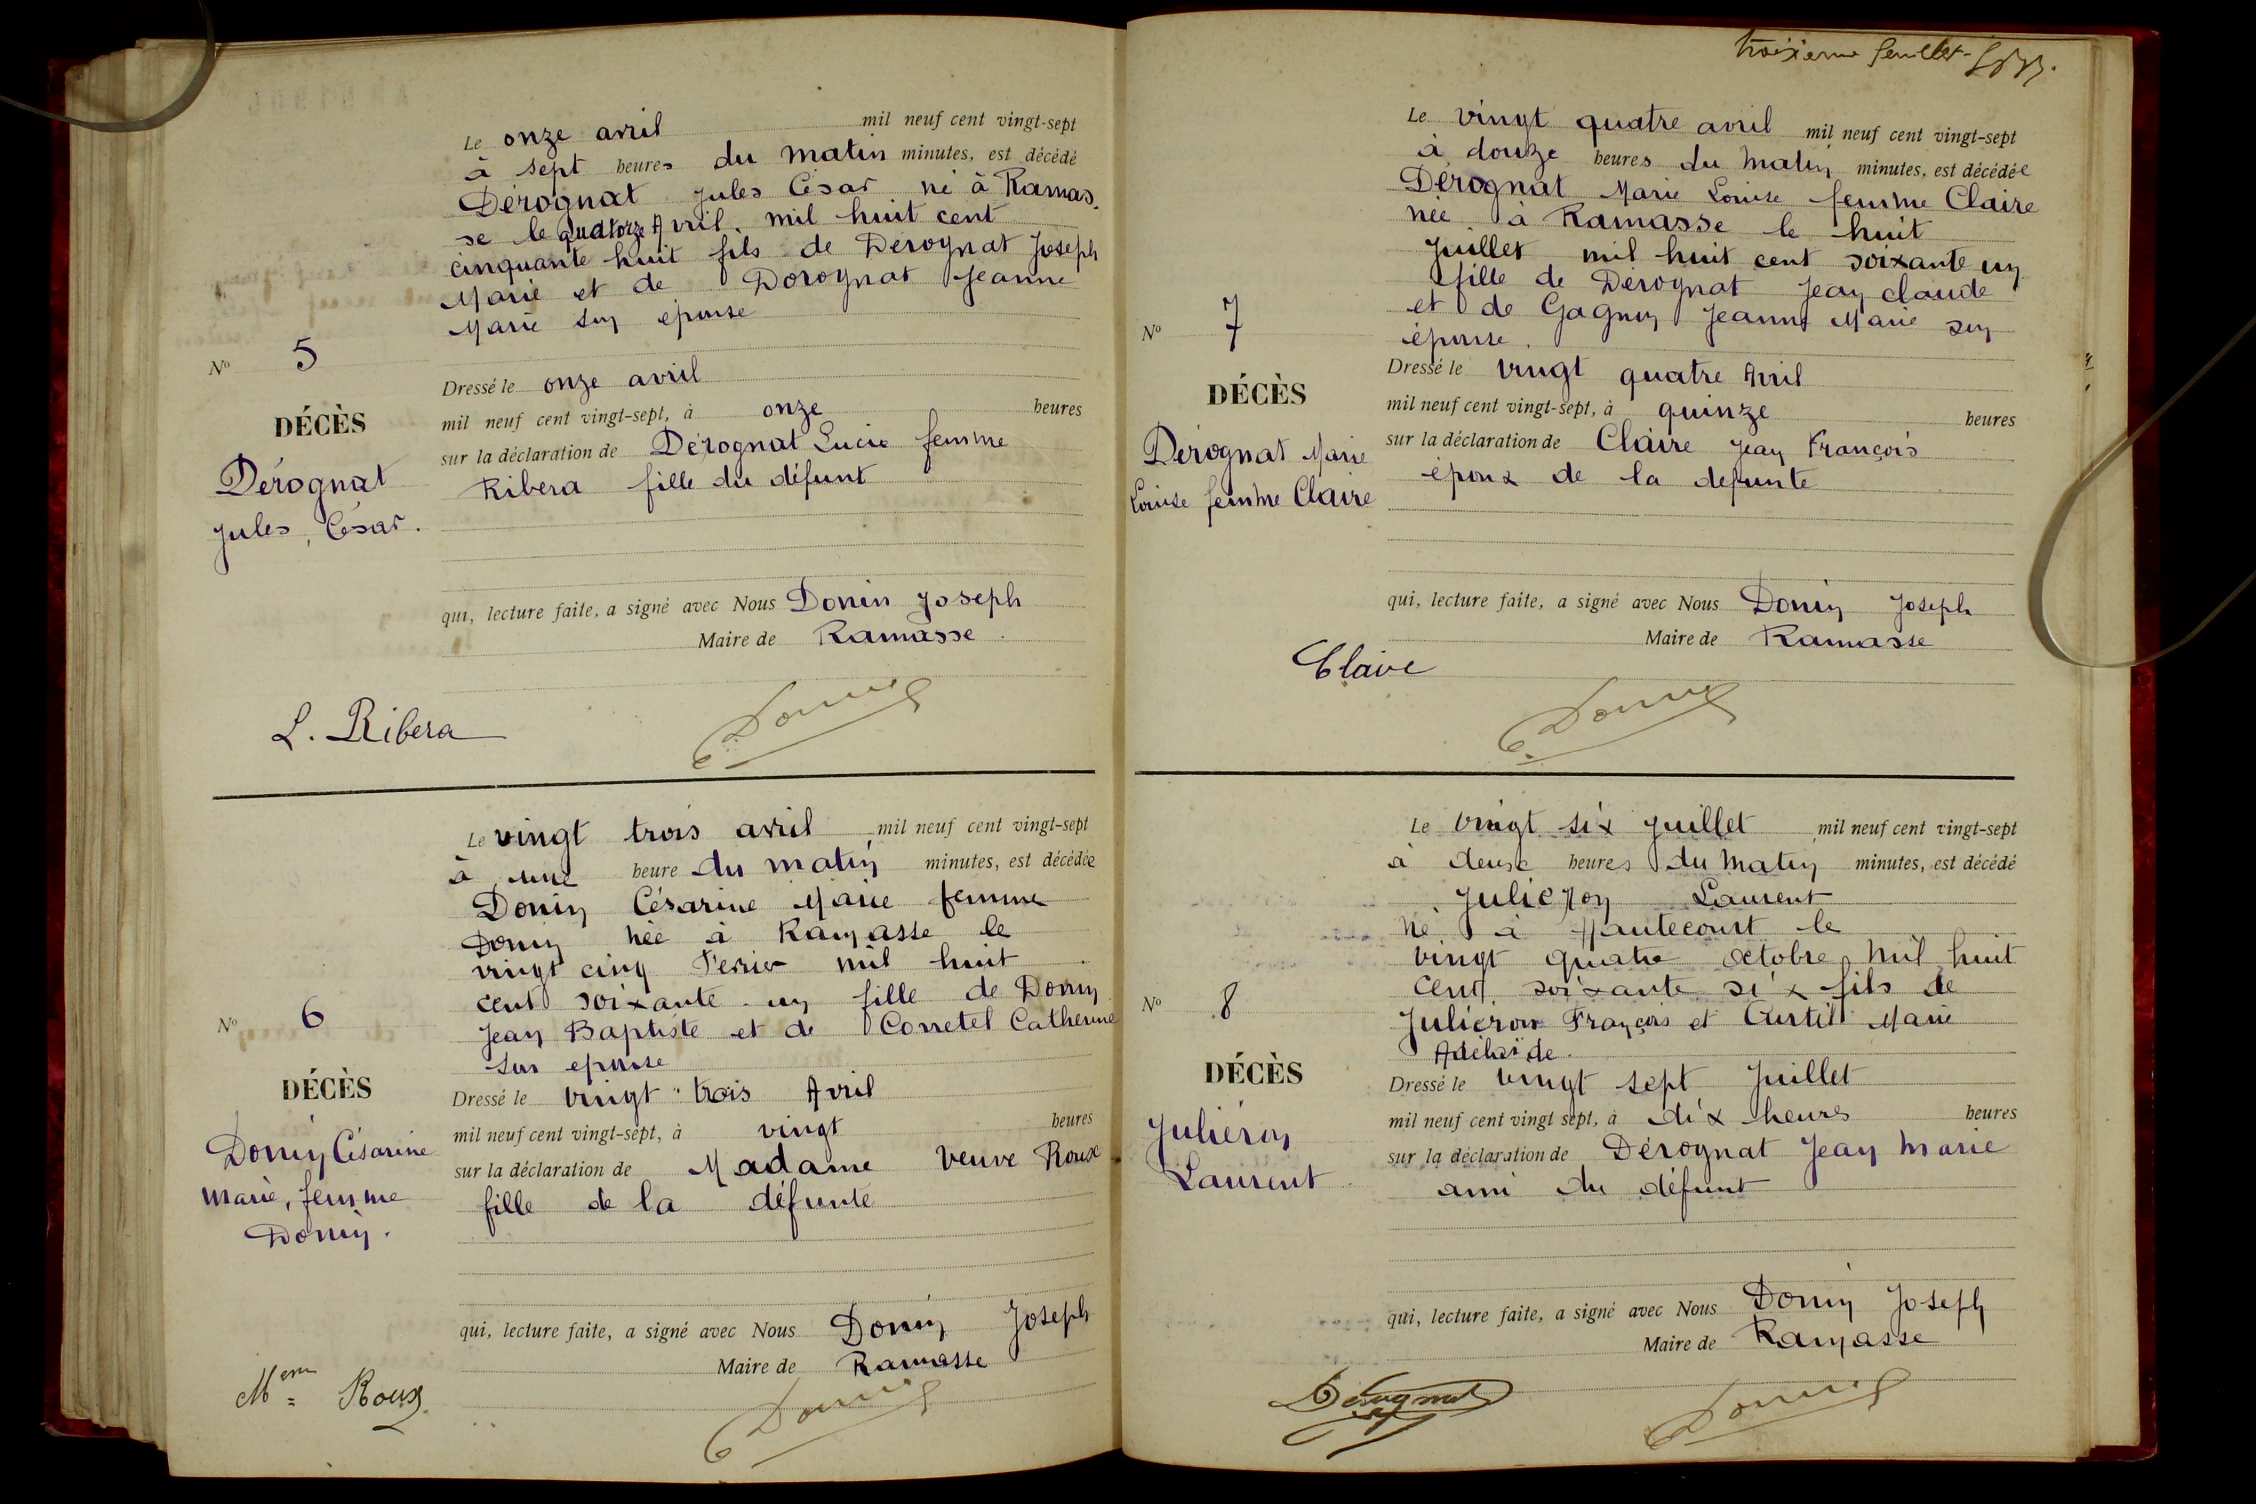 Le onze avril mil neuf cent vingt-sept
à sept heures du matin minutes, est décédé
Dérognat Jules César né à Ramas
se le quatorze Avril mil huit cent
cinquante huit fils de Dérognat Joseph
Marie et de Dorognat Jeanne
Marie son épouse
Nº 5
DÉCÈS
Dérognat
Jules, César.
Dressé le onze avril
mil neuf cent vingt-sept, à onze heures
sur la déclaration de Dérognat Lucie femme
Ribera fille du défunt
qui, lecture faite, a signé avec Nous Donin Joseph
Maire de Ramasse.
L. Ribera
Donin
Le vingt trois avril mil neuf cent vingt-sept
à une heure du matin minutes, est décédée
Donin Césarine Marie femme
Donin née à Ramasse le
vingt cinq Fevrier mil huit
cent soixante un fille de Donin
Jean Baptiste et de Corretel Catherine
son epouse
Nº 6
DÉCÈS
Donin Césarine
Marie, femme
Donin.
Dressé le vingt trois Avril
mil neuf cent vingt-sept, à vingt heures
sur la déclaration de Madame veuve Roux
fille de la défunte
qui, lecture faite, a signé avec Nous Donin Joseph
Maire de Ramasse
Mem Roux
Donin
troisième feuillet
Le vingt quatre avril mil neuf cent vingt-sept
à douze heures du matin minutes, est décédée
Dérognat Marie Louise femme Claire
née à Ramasse le huit
Juillet mil huit cent soixante un
fille de Dérognat Jean claude
et de Gagnon Jeanne Marie son
épouse.
Nº 7
7
DÉCÈS
Dérognat Marie
Louise femme Claire
Dressé le vingt quatre Avril
mil neuf cent vingt-sept, à quinze heures
sur la déclaration de Claire Jean François
époux de la defunte
qui, lecture faite, a signé avec Nous Donin Joseph
Maire de Ramasse
Claire
Donin
Le vingt six juillet mil neuf cent vingt-sept
à deuse heures du matin minutes, est décédé
Juliéron Laurent
né à Hautecourt le
vingt quatre octobre mil huit
cent soixante six fils de
Juliéron François et Curtil Marie
Adélaïde.
Nº 8
DÉCÈS
Juliéron
Laurent
Dressé le vingt sept Juillet
mil neuf cent vingt sept, à dix heures heures
sur la déclaration de Dérognat Jean Marie
ami du défunt
qui, lecture faite, a signé avec Nous Donin Joseph
Maire de Ramasse
Dérognat
Donin